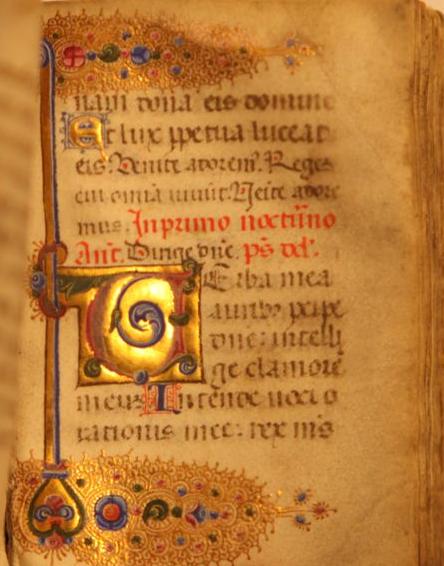 nam dona eis domine
Et lux ppetua luceat
eis. Venite adorem. Reges
cui omia uiuut. Ueite adore
mus. In primo nocturno
Ant. Dirige dne. ps dd.
Uerba mea
auribz pcipe
dne: intelli
ge clamore
meuz Intende uoci o
rationis mee: rex ms